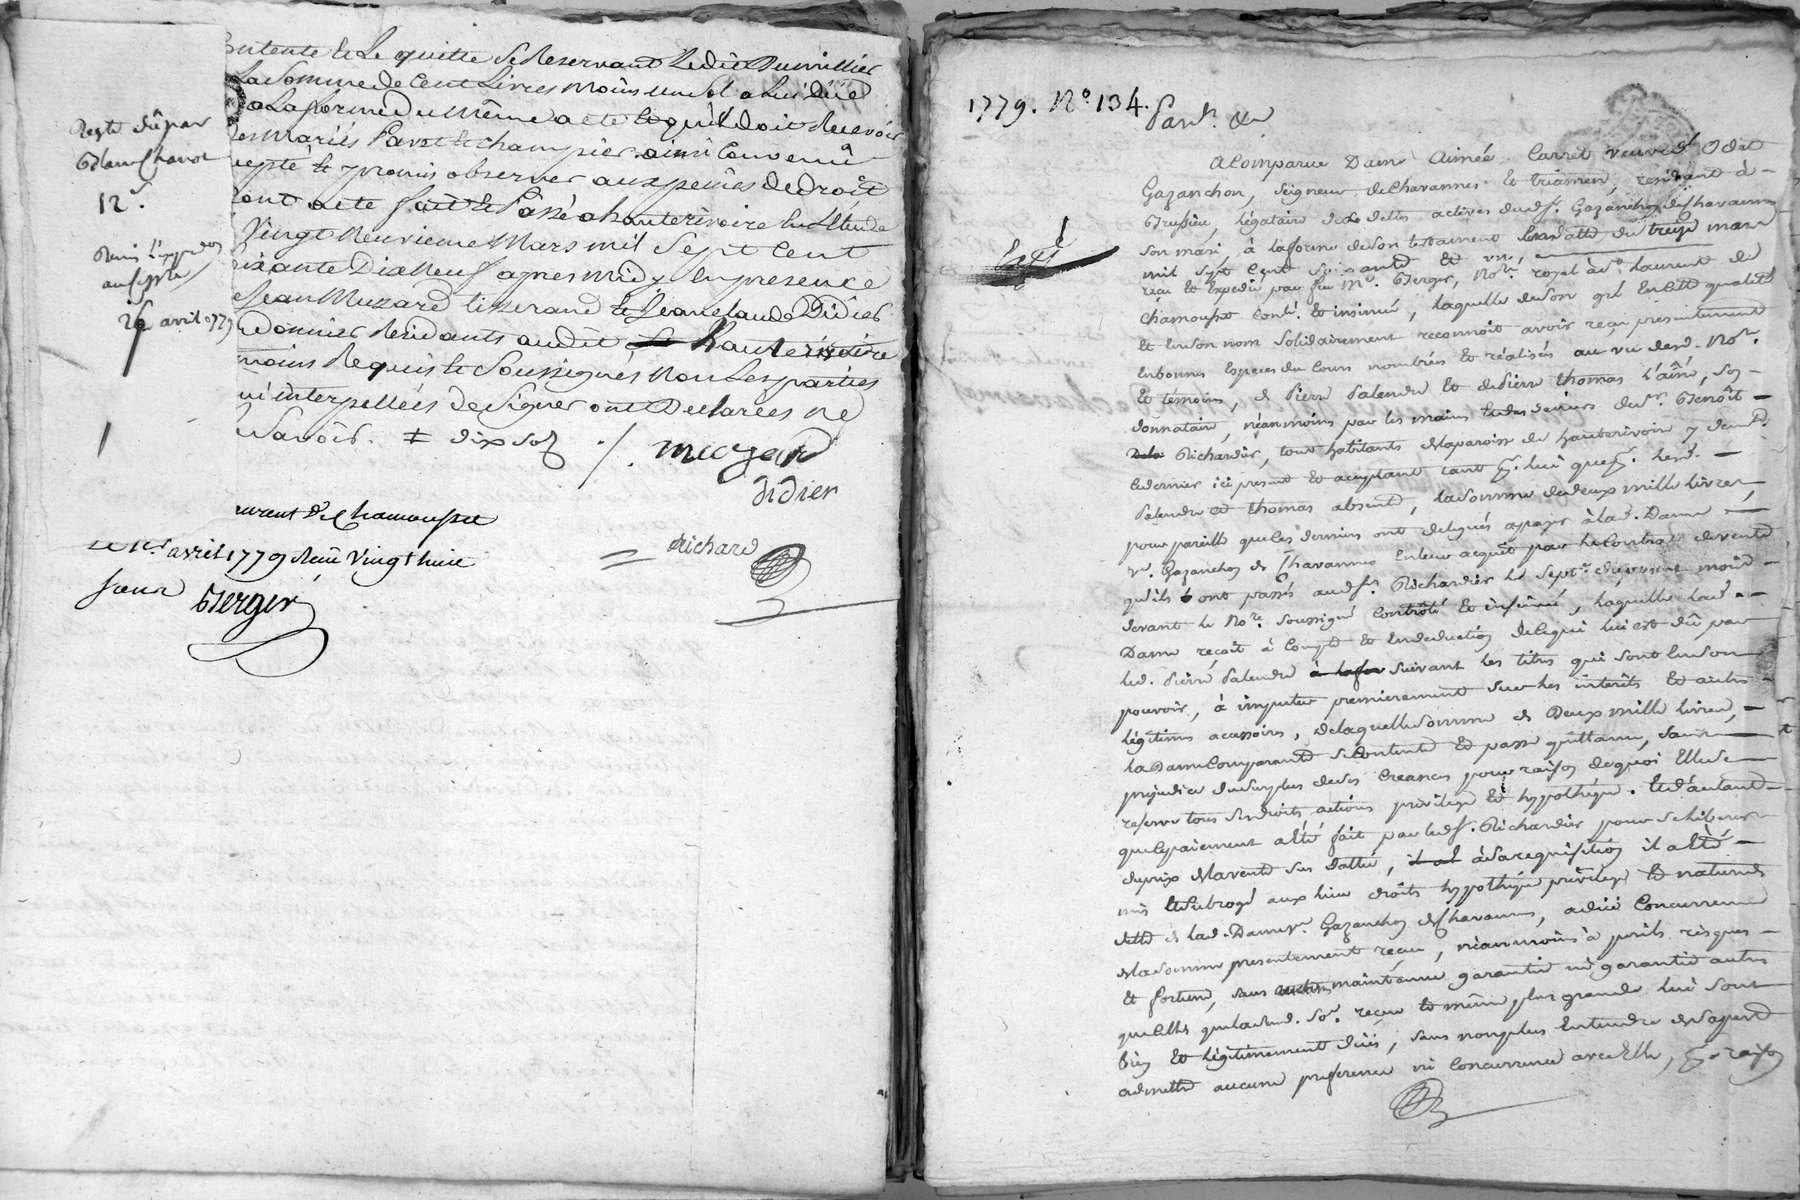 contente et Le quitte Se Reservant Ledit Duvillier
La Somme de Cent Livres moins un Sol a Lui düe
a La forme du Même acte et quil doit Recevoir
des Mariés Pavot et champier ainsi Convenu
accepté et promis observer aux peines de droit
dont acte fait et Passé a hauterivoire Le
Vingt Neuvieme Mars mil Sept Cent
soixante Dix Neuf apres Midy En presence
de Jean Muzard tisserand et Jean claude Didier
Residants audit hauterivoire
temoins Requis et Soussignés Non Les parties
qui interpellées de Signer ont Declarées ne
Savoir. dix sol
muzard
didier
Richard
Reste dû par
12s
26 avril 1779
Laurent de Chamousset
avril 1779 Reçu Vingt huit
Berger
1779. No. 134.
Pardt. &a
A Comparue Dame Aimée Carret veuve d Odet
Gazanchon, Seigneur de Chavannes Et triamen, résidant à
Brussieu, légataire des dettes actives dud. Sr. Gazanchon de Chavannes
Son mari, à la forme de Son testament En datte du treize mars
mil Sept Cent Soixante Et un,
reçu Et Expedié par feu Me. Berger, Nore. royal à St. Laurent de
chamousset Contlé. Et insinué, laquelle de Son gré En cette qualité
Et En Son nom Solidairement reconnoit avoir reçu presentement
En bonnes Especes du Cours nombrées Et réalisées au vu desd. Nore.
Et témoins, de Pierre Palandre Et de Pierre thomas L'aîné, Son
donnataire, néanmoins par les mains Et des deniers de Sr. Benoît
Richardier, tous habitants de la paroisse de hauterivoire
Ce dernier ici present Et acceptant tant pr. lui que pr. lesd.
Palandre Et thomas absents, la Somme de deux mille livres,
pour pareille que les derniers ont delegués à payer à lad. Dame
ve. Gazanchon de Chavannes En leur acquit par le Contrat de vente
qu'ils ont passés aud. Sr. Richardier le Sept du present mois
devant le Nore. Soussigné Contrôlé Et insinué, laquelle lad.
Dame reçoit à Compte Et En deduction de Ce qui lui est dû par
led. Pierre Palandre Suivant les titres qui Sont En Son
pouvoir, à imputer premierement Sur les interêts Et autres
légitimes accessoires, de laquelle Somme de Deux mille livres,
la Dame Comparante Se Contente Et passe quittance, Sans
préjudice du Surplus de Ses Creances pour raison de quoi Elle Se
reserve tous Ses droits actions privilege Et hypothéque. Et d'autant
que le paiement a Eté fait par led. Sr. Richardier pour Se liberer
du prix de la vente Sus dattée, à Sa requisition il a Eté
mis Et Subrogé aux lieu droits hypothéque privilege Et nature de
dette de lad. Dame ve. Gazanchon de Chavannes, à dûe Concurrence
de la Somme presentement reçue, néanmoins à perils risques
Et fortune, Sans maintenue garantie ni garantie autre
que Celle que lad. So. reçue Et même plus grande lui Sont
bien Et légitimement dües, Sans non plus Entendre de Sa part
admettre aucune preference ni Concurrence avec Elle, pr. raison